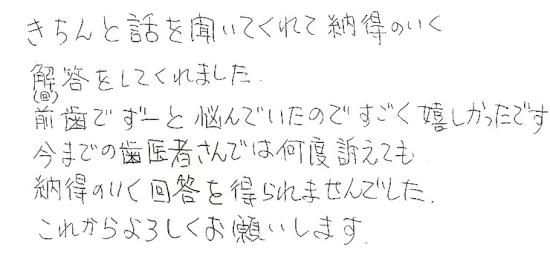 きちんと話を聞いてくれて納得のいく
解答をしてくれました.
(回)
前歯でずーと悩んでいたのですごく嬉しかったです
今までの歯医者さんでは何度訴えても
納得のいく回答を得られませんでした.
これからよろしくお願いします.